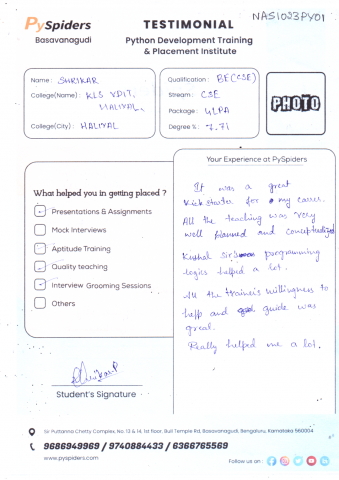 PySpiders
Basavanagudi
TESTIMONIAL
Python Development Training
& Placement Institute
NAS1023PY01
Name : SHRIKAR
College(Name) : KLS VDIT,
HALIYAL.
College(City) : HALIYAL
Qualification : BE(CSE)
Stream : CSE
Package : 4LPA
Degree % : 7.71
PHOTO
What helped you in getting placed ?
Presentations & Assignments
Mock Interviews
Aptitude Training
Quality teaching
Interview Grooming Sessions
Others
Your Experience at PySpiders
It was a great
Kickstarter for my career.
All the teaching was very
well planned and conceptualized
Kushal programming
logics helped a lot.
All the willingness to
help and guide was
great.
Really helped me a lot.
Student's Signature
Sir Puttanna Chetty Complex, No. 13 & 14, 1st floor, Bull Temple Rd, Basavanagudi, Bengaluru, Karnataka 560004
9686949969 / 9740884433 / 6366765569
www.pyspiders.com
Follow us on :